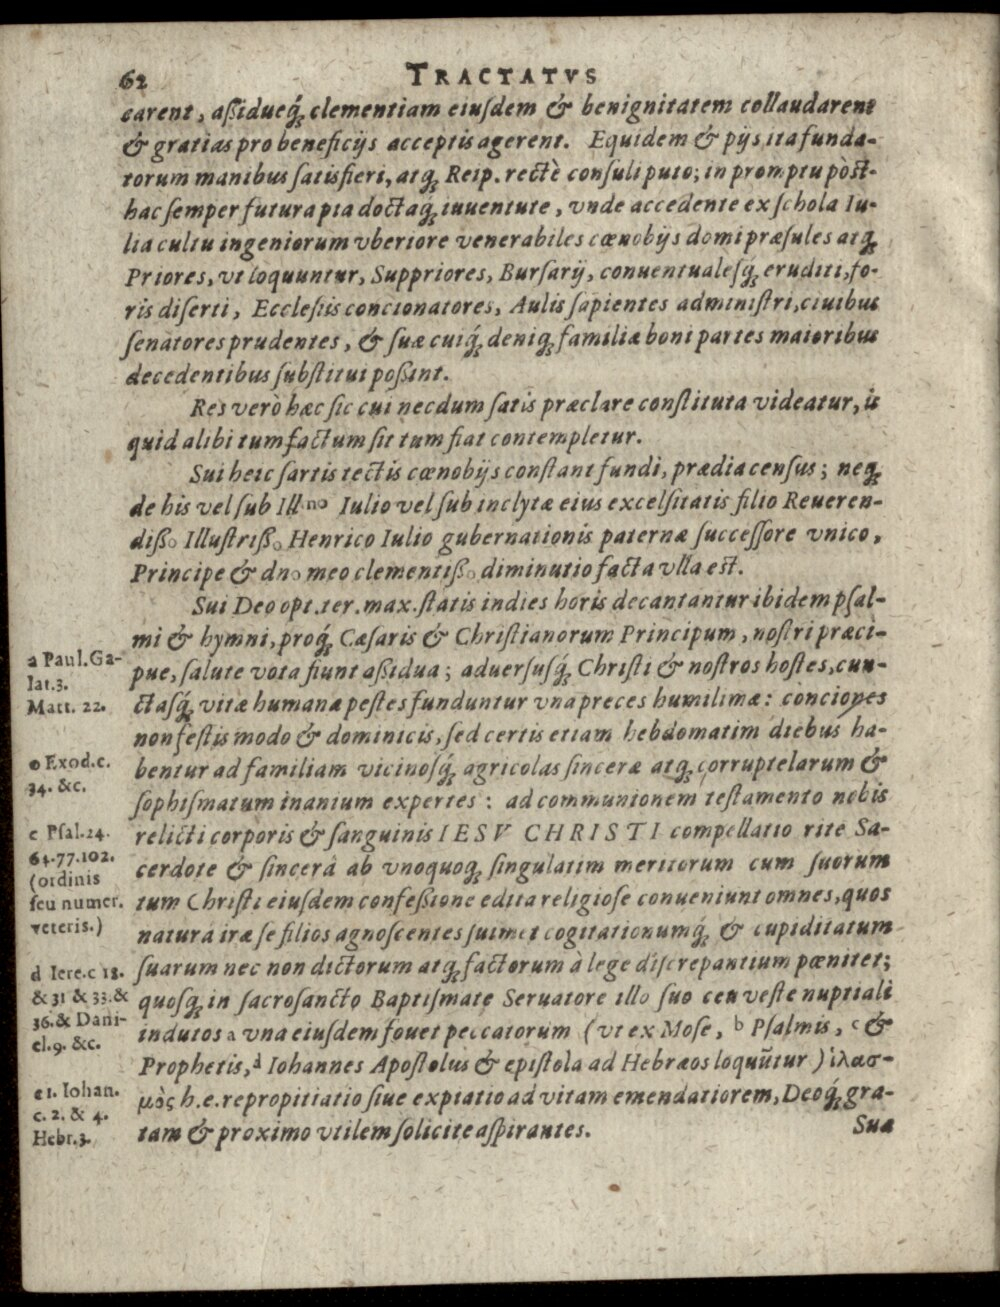 62 TRACTATVS
carent, aſsidueq́; clementiam eiuſdem & benignitatem collaudarent
& gratias pro beneficijs acceptis agerent. Equidem & pijs ita funda-
torum manibus ſatisfieri, atq; Reip. rectè conſuli puto; in promptu pòst-
hac ſemper futura pia doctaq́; iuuentute, vnde accedente ex ſchola Iu-
lia cultu ingeniorum vberiore venerabiles cœnobijs domi præſules atq;
Priores, vt loquuntur, Suppriores, Burſarij, conuentualeſq́; eruditi, fo-
ris diſerti, Eccleſiis concionatores, Aulis ſapientes adminiſtri, ciuibus
ſenatores prudentes, & ſuæ cuiq́; deniq; familiæ boni partes maioribus
decedentibus ſubſtitui poſsint.
Res verò hæc ſic cui necdum ſatis præclare conſtituta videatur, is
quid alibi tum factum ſit tum fiat contempletur.
Sui heic ſartis tectis cœnobijs conſtant fundi, prædia cenſus; neq;
de his vel ſub Ill.mo Iulio vel ſub inclytæ eius excelſitatis filio Reueren-
diſso Illuſtriſso Henrico Iulio gubernationis paternæ ſucceſſore vnico,
Principe & dno meo clementiſso diminutio facta vlla est.
Sui Deo opt. ter. max. ſtatis indies horis decantantur ibidem pſal-
mi & hymni, proq́; Cæſaris & Chriſtianorum Principum, noſtri præci-
pue, ſalute vota fiunt aſsidua; aduerſuſq́; Chriſti & noſtros hoſtes, cun-
ctaſq́; vitæ humanæ peſtes funduntur vna preces humilimæ: conciones
non feſtis modo & dominicis, ſed certis etiam hebdomatim diebus ha-
bentur ad familiam vicinoſq́; agricolas ſinceræ atq; corruptelarum &
ſophiſmatum inanium expertes: ad communionem teſtamento nobis
relicti corporis & ſanguinis IESV CHRISTI compellatio rite Sa-
cerdote & ſincerâ ab vnoquoq; ſingulatim meritorum cum ſuorum
tum Chriſti eiuſdem confeſsione edita religioſe conueniunt omnes, quos
natura iræ ſe filios agnoſcentes ſuimet cogitationumq́; & cupiditatum
ſuarum nec non dictorum atq; factorum à lege diſcrepantium pœnitet;
quoſq́; in ſacroſancto Baptiſmate Seruatore illo ſuo ceu veſte nuptiali
indutos a vna eiuſdem fouet peccatorum (vt ex Moſe, b Pſalmis, c &
Prophetis, d Iohannes Apoſtolus & epiſtola ad Hebræos loquũtur) ἱλασ-
μὸς h.e. repropitiatio ſiue expiatio ad vitam emendatiorem, Deoq́; gra-
tam & proximo vtilem ſolicite aſpirantes.
Sua
a Paul. Ga-
lat. 3.
Matt. 22.
o Exod. c.
34. &c.
c Pſal. 24.
64. 77. 102.
(ordinis
ſeu numer.
veteris.)
d Iere. c 18.
& 31 & 33. &
36. & Dani-
el. 9. &c.
e 1. Iohan.
c. 2. & 4.
Hebr. 3.